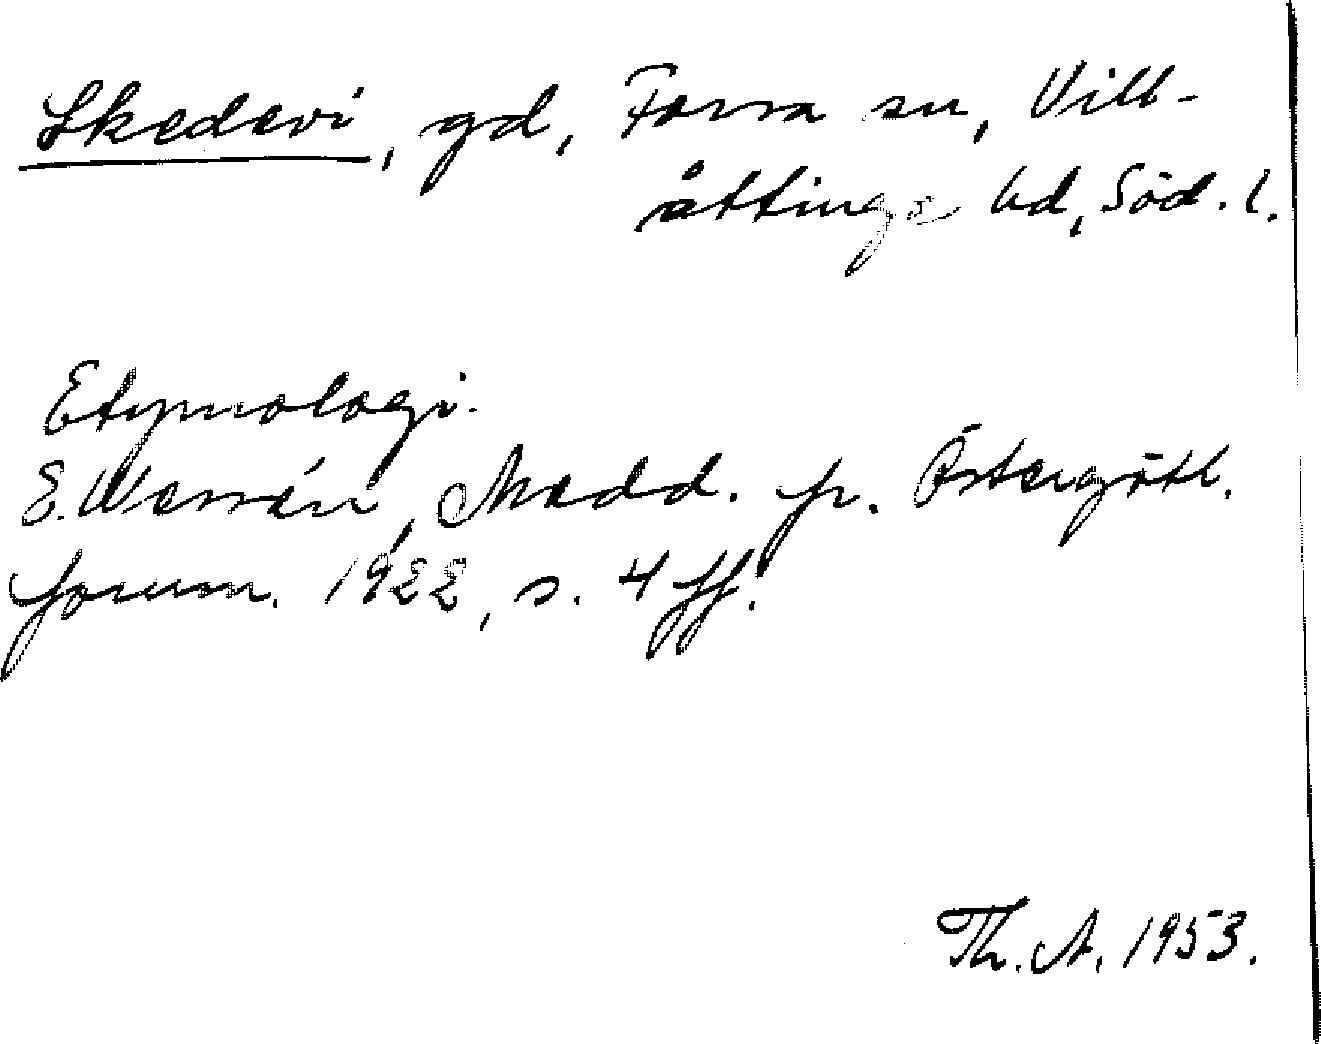 Skedevi, gd, Forssa sn, Vill-
åttinge hd, Söd. l.
Etymologi.
E. Wessén, Medd. fr. Östergötl.
fornm. 1922, s. 4 ff.
Th. A. 1953.